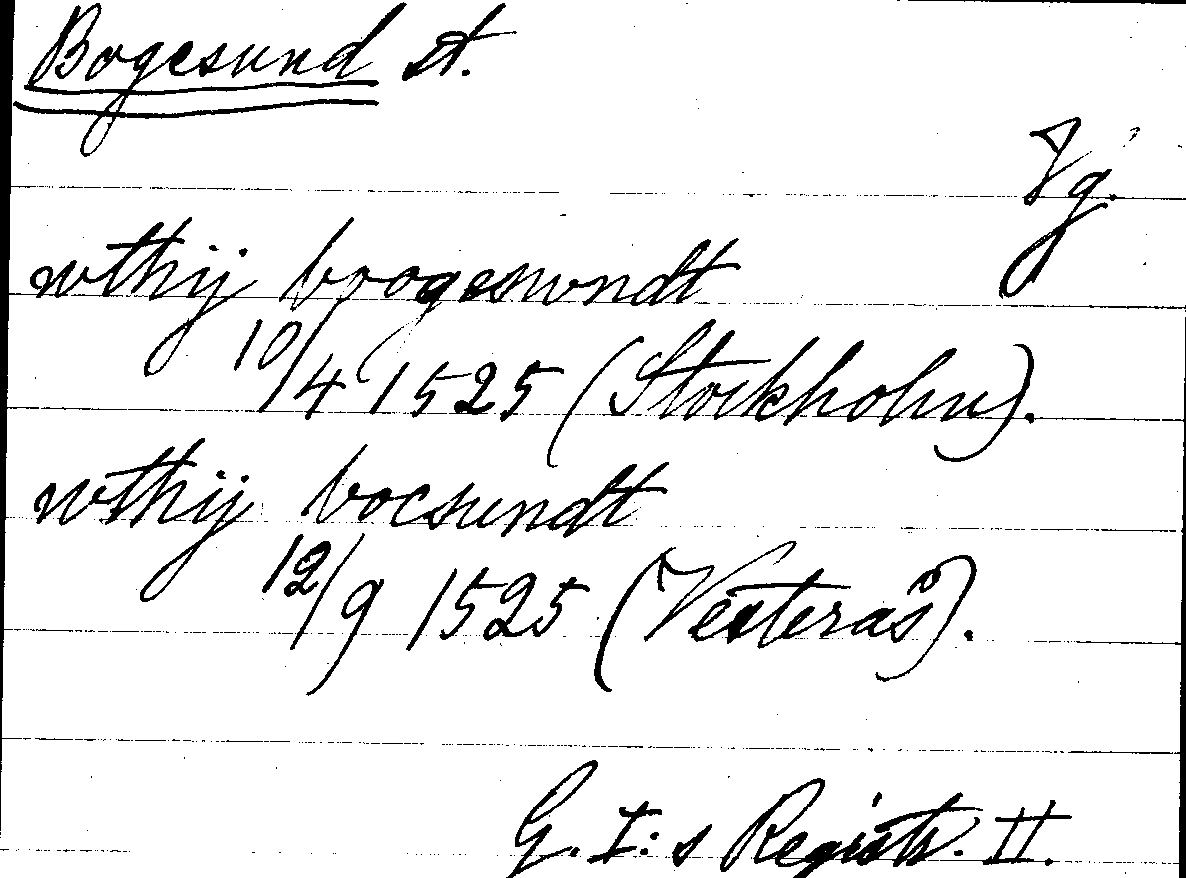 Bogesund st.
Vg.
wthij boogeswndt
10/4 1525 (Stockholm).
wthij bocsundt
12/9 1525 (Vesterås).
G. I:s Registr. II.